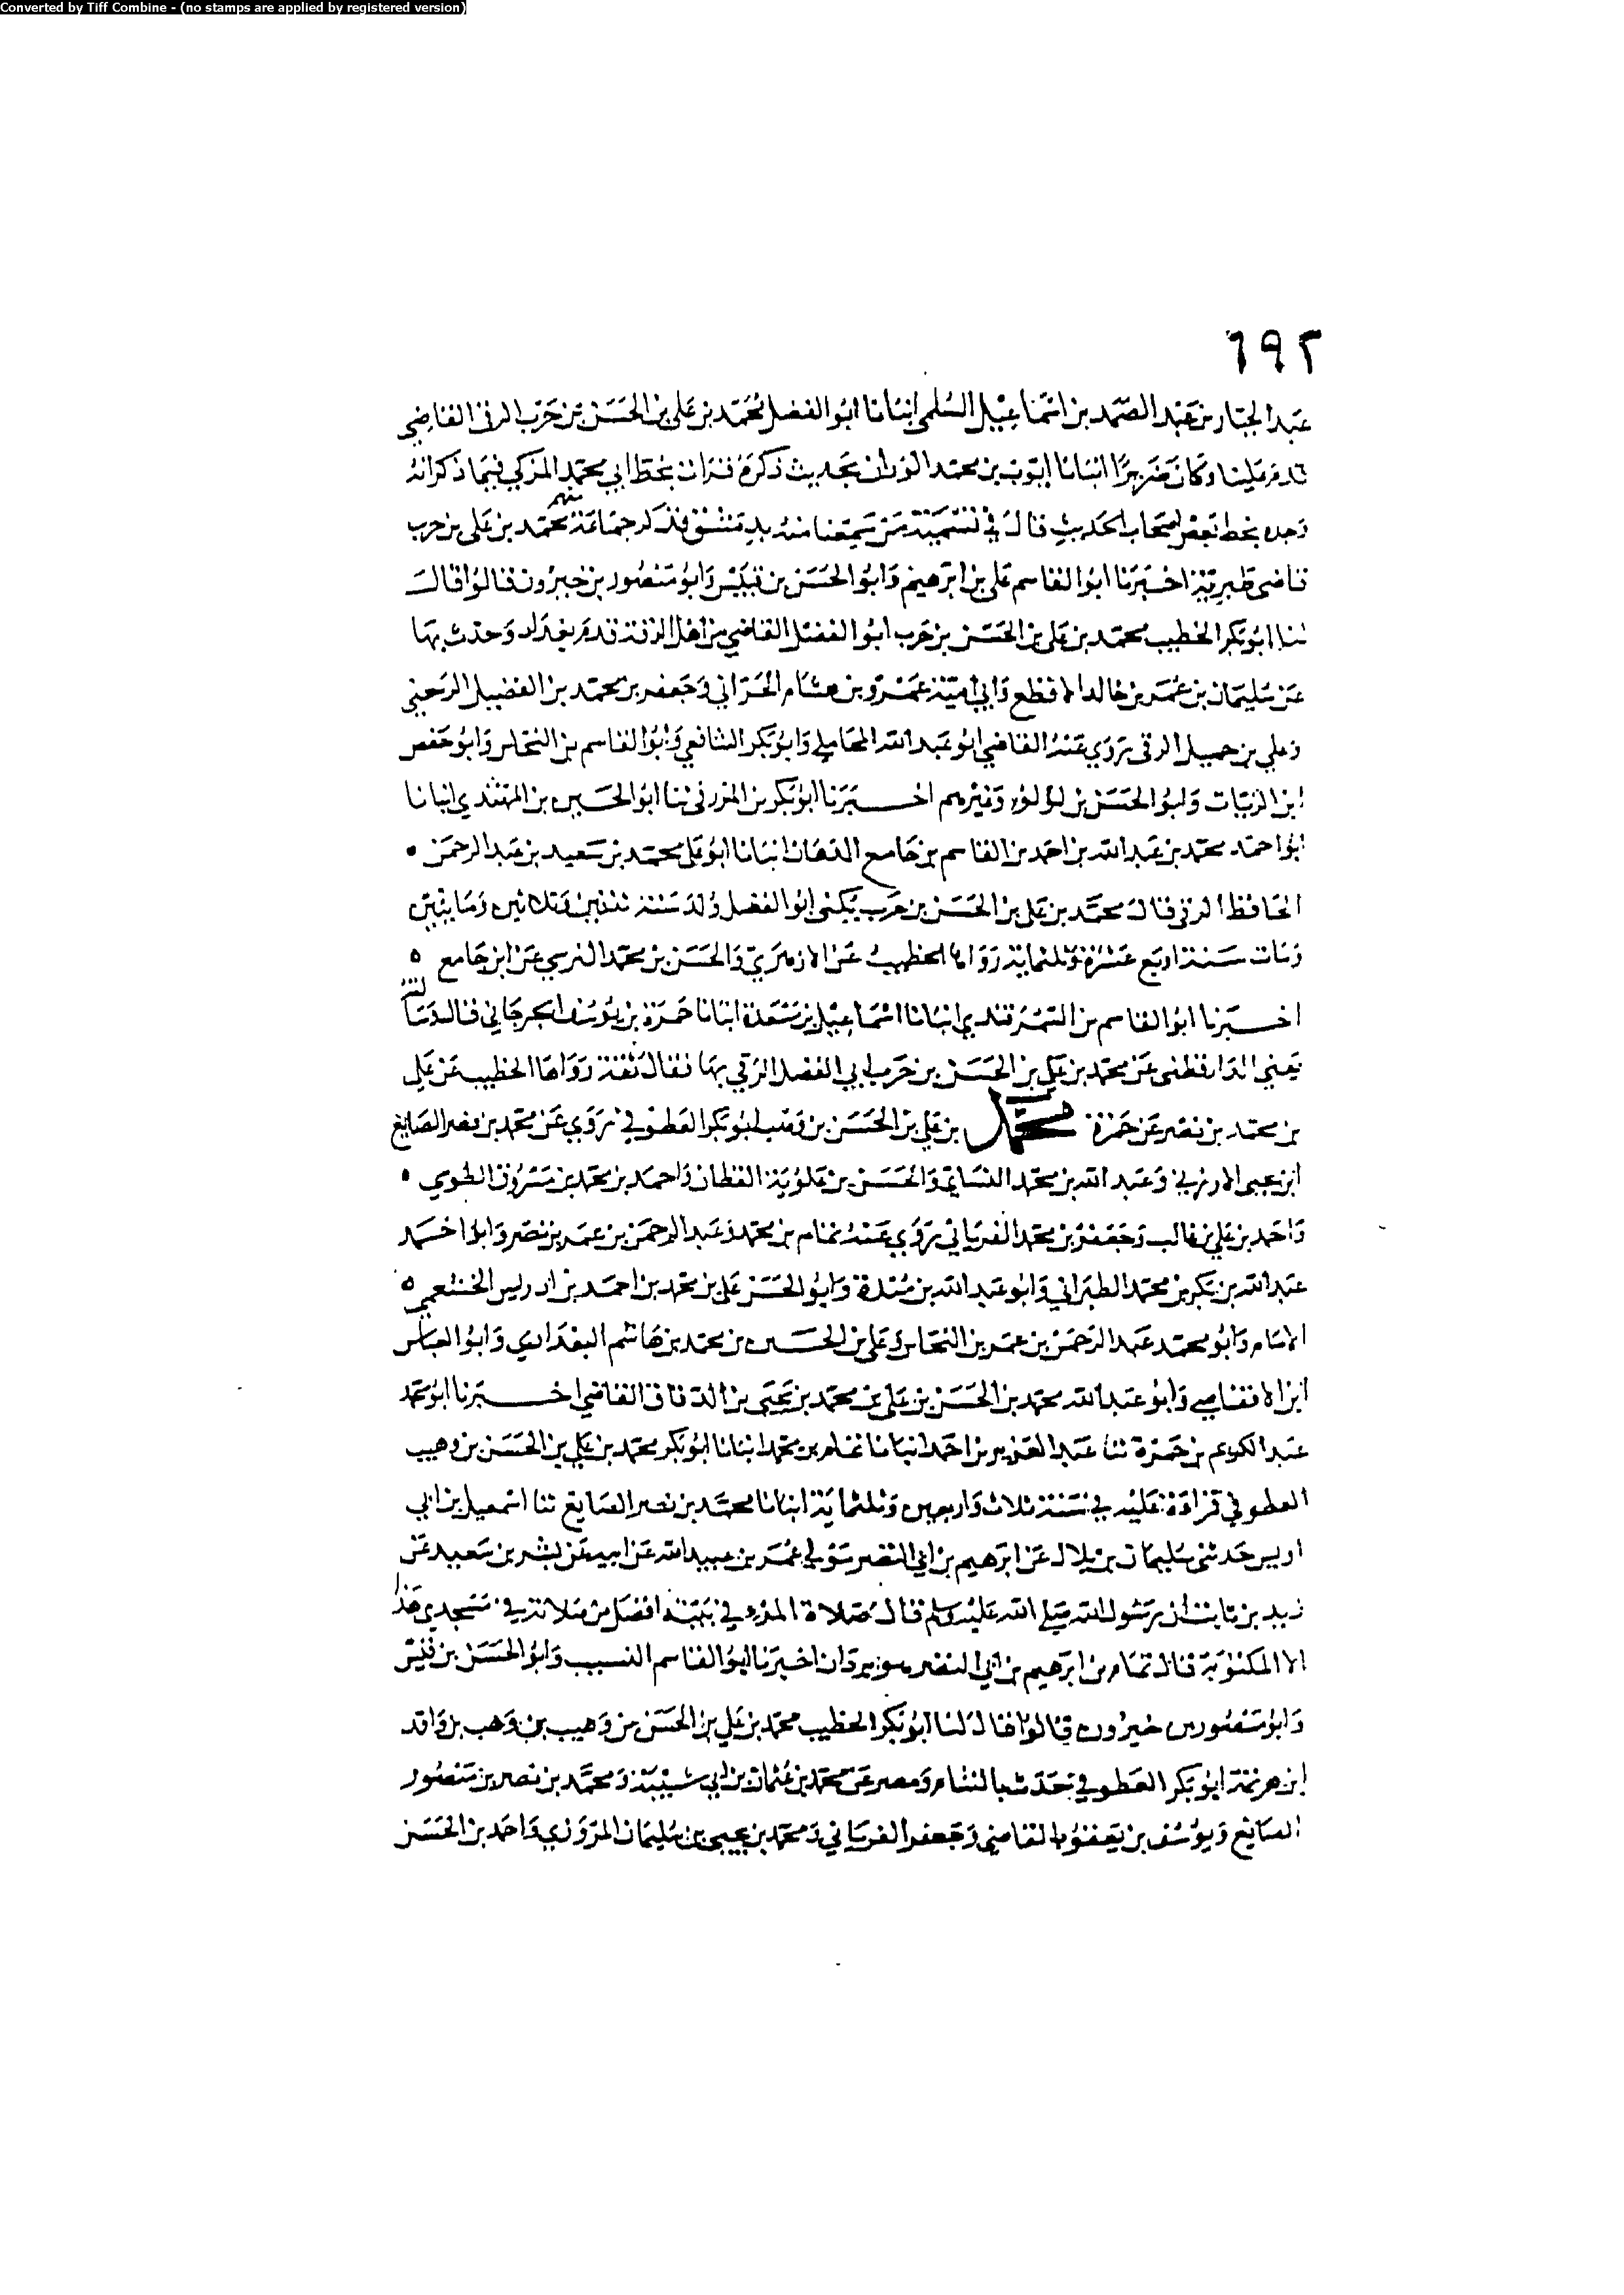 Converted by Tiff Combine - (no stamps are applied by registered version)
٦٩٢
عبد الجبار بن عبد الصمد بن اسماعيل السلمي انبانا ابو الفضل محمد بن علي بن الحسن بن حرب الرقي القاضي
قدم علينا وكان ضريرا انبانا ايوب بن محمد الوزان بحديث ذكره قرات بخط ابي محمد المزكي فيما ذكر انه
وجده بخط بعض اصحاب الحديث قال في تسمية من سمعنا منه بدمشق فذكر جماعة منهم محمد بن علي بن حرب
قاضي طبرية اخبرنا ابو القاسم علي بن ابرهيم وابو الحسن بن قبيس وابو منصور بن خيرون قالوا قال
لنا ابو بكر الخطيب محمد بن علي بن الحسن بن حرب ابو الفضل القاضي من اهل الرقة قدم بغداد وحدث بها
عن سليمان بن عمر بن خالد الاقطع وابي امية عمرو بن هشام الحراني وجعفر بن محمد بن الفضيل الرسعني
وعلي بن جميل الرقي روي عنه القاضي ابو عبد الله المحاملي وابو بكر الشافعي وابو القاسم بن النخاس وابو حفص
ابن الزيات وابو الحسن بن لؤلؤ وغيرهم اخبرنا ابو بكر بن المزرفي ثنا ابو الحسين بن المهتدي انبانا
ابو احمد محمد بن عبد الله بن احمد بن القاسم بن جامع الدهان انبانا ابو علي محمد بن سعيد بن عبد الرحمن
الحافظ الرقي قال محمد بن علي بن الحسن بن حرب يكنى ابو الفضل ولد سنة ثنتين وثلاثين ومايتين
ومات سنة اربع عشرة وثلثماية رواها الخطيب عن الازهري والحسن بن محمد النرسي عن ابن جامع ه
اخبرنا ابو القاسم بن السمرقندي انبانا اسماعيل بن مسعدة انبانا حمزة بن يوسف الجرجاني قال وسالته
يعني الدارقطني عن محمد بن علي بن الحسن بن حرب ابي الفضل الرقي بها فقال ثقة رواها الخطيب عن علي
بن محمد بن نصر عن حمزة محمد بن علي بن الحسن بن وهب ابو بكر العطوفي روي عن محمد بن نصر الصايغ
ابن يحيى الا وعبد الله بن محمد النسايي والحسن بن علوية القطان واحمد بن محمد بن مسروق الطوسي
واحمد بن علي بن غالب وجعفر بن محمد الفريابي روي عنه تمام بن محمد وعبد الرحمن بن عمر بن نصر وابو احمد
عبد الله بن بكر بن محمد الطبراني وابو عبد الله بن مندة وابو الحسن علي بن محمد بن احمد بن ادريس الخثعمي ه
الامام وابو محمد عبد الرحمن بن عمر بن النحاس وعلي بن الحسين بن محمد بن هاشم البغدادي وابو العباس
ابن وابو عبد الله محمد بن الحسن بن علي بن محمد بن يحيى بن الدقاق القاضي اخبرنا ابو محمد
عبد الكريم بن حمزة ثنا عبد العزيز بن احمد انبانا تمام بن محمد انبانا ابو بكر محمد بن علي بن الحسن بن وهيب
العطوفي قراءة عليه في سنة ثلاث واربعين وثلثماية انبانا محمد بن نصر الصايغ ثنا اسمعيل بن ابي
اويس حدثني سليمان بن بلال عن ابرهيم بن ابي النضر مولى عمر بن عبيد الله عن ابيه عن بشر بن سعيد عن
زيد بن ثابت ان رسول الله صلى الله عليه وسلم قال صلاة المرء في بيته افضل من صلاته في مسجدي هذا
الا المكتوبة قال تمام بن ابرهيم بن ابي النضر هو بردان اخبرنا ابو القاسم النسيب وابو الحسن بن قبيس
وابو منصور بن خيرون قالوا قال لنا ابو بكر الخطيب محمد بن علي بن الحسن بن وهيب بن وهب بن واقد
ابن هرثمة ابو بكر العطوفي حدث بالشام ومصر عن محمد بن عثمان بن ابي شيبة ومحمد بن نصر بن منصور
الصايغ ويوسف بن يعقوب القاضي وجعفر الفريابي ومحمد بن يحيى بن سليمان المروزي واحمد بن الحسن